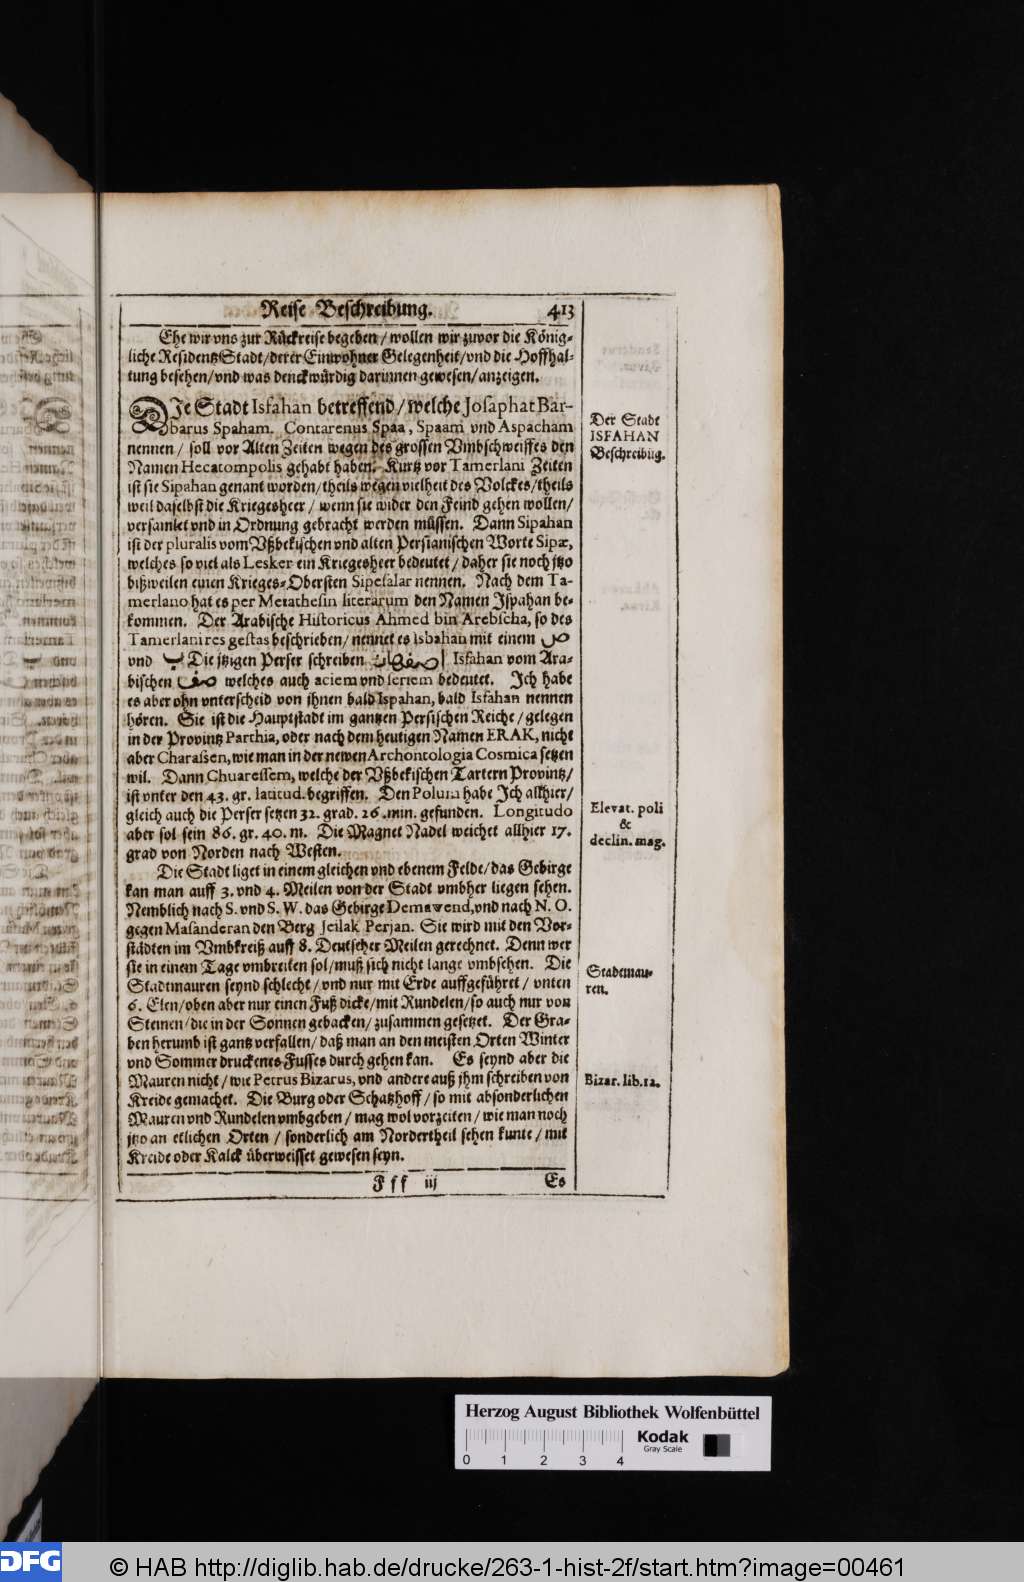 Reise Beschreibung. 413
Ehe wir vns zur Rückreise begeben / wollen wir zuvor die König-
liche Residentz Stadt / derer Einwohner Gelegenheit / vnd die Hoffhal-
tung besehen / vnd was denckwürdig darinnen gewesen / anzeigen.
DIe Stadt Isfahan betreffend / welche Josaphat Bar-
barus Spaham. Contarenus Spaa, Spaam vnd Aspacham
nennen / soll vor Alten Zeiten wegen des grossen Vmbschweiffes den
Namen Hecatompolis gehabt haben. Kurtz vor Tamerlani Zeiten
ist sie Sipahan genant worden / theils wegen vielheit des Volckes / theils
weil daselbst die Kriegesheer / wenn sie wider den Feind gehen wollen /
versamlet vnd in Ordnung gebracht werden müssen. Dann Sipahan
ist der pluralis vom Vßbekischen vnd alten Persianischen Worte Sipæ,
welches so viel als Lesker ein Kriegesheer bedeutet / daher sie noch jtzo
bißweilen einen Krieges-Obersten Sipesalar nennen. Nach dem Ta-
merlano hat es per Metathesin literarum den Namen Ispahan be-
kommen. Der Arabische Historicus Ahmed bin Arebscha, so des
Tamerlani res gestas beschrieben / nennet es Isbahan mit einem ص
vnd ب Die jtzigen Perser schreiben اصفهان Isfahan vom Ara-
bischen صف welches auch aciem vnd seriem bedeutet. Ich habe
es aber ohn vnterscheid von ihnen bald Ispahan, bald Isfahan nennen
hören. Sie ist die Hauptstadt im gantzen Persischen Reiche / gelegen
in der Provintz Parthia, oder nach dem heutigen Namen ERAK, nicht
aber Charassen, wie man in der newen Archontologia Cosmica setzen
wil. Dann Chuaressem, welche der Vßbekischen Tartern Provintz /
ist vnter den 43. gr. latitud. begriffen. Den Polum habe Ich allhier /
gleich auch die Perser setzen 32. grad. 26. min. gefunden. Longitudo
aber sol sein 86. gr. 40. m. Die Magnet Nadel weichet allhier 17.
grad von Norden nach Westen.
Die Stadt liget in einem gleichen vnd ebenem Felde / das Gebirge
kan man auff 3. vnd 4. Meilen von der Stadt vmbher liegen sehen.
Nemblich nach S. vnd S. W. das Gebirge Demawend, vnd nach N. O.
gegen Masanderan den Berg Jeilak Perjan. Sie wird mit den Vor-
städten im Vmbkreiß auff 8. Deutscher Meilen gerechnet. Denn wer
sie in einem Tage vmbreiten sol / muß sich nicht lange vmbsehen. Die
Stadtmauren seynd schlecht / vnd nur mit Erde auffgeführet / vnten
6. Elen / oben aber nur einen Fuß dicke / mit Rundelen / so auch nur von
Steinen / die in der Sonnen gebacken / zusammen gesetzet. Der Gra-
ben herumb ist gantz verfallen / daß man an den meisten Orten Winter
vnd Sommer druckenes Fusses durch gehen kan. Es seynd aber die
Mauren nicht / wie Petrus Bizarus, vnd andere auß jhm schreiben von
Kreide gemachet. Die Burg oder Schatzhoff / so mit absonderlichen
Mauren vnd Rundelen vmbgeben / mag wol vorzeiten / wie man noch
jtzo an etlichen Orten / sonderlich am Nordertheil sehen kunte / mit
Kreide oder Kalck überweisset gewesen seyn.
Fff iij Es
Der Stadt
ISFAHAN
Beschreibüg.
Elevat. poli
&
declin. mag.
Stadtmau-
ren.
Bizar. lib. 12.
Herzog August Bibliothek Wolfenbüttel
Kodak
Gray Scale
0 1 2 3 4
DFG
© HAB http://diglib.hab.de/drucke/263-1-hist-2f/start.htm?image=00461